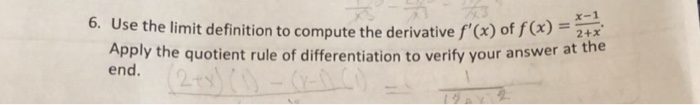 6. Use the limit definition to compute the derivative f'(x) of f(x) = x-1/2+x.
Apply the quotient rule of differentiation to verify your answer at the
end.
(2+x)(1) - (x-1)(1) =